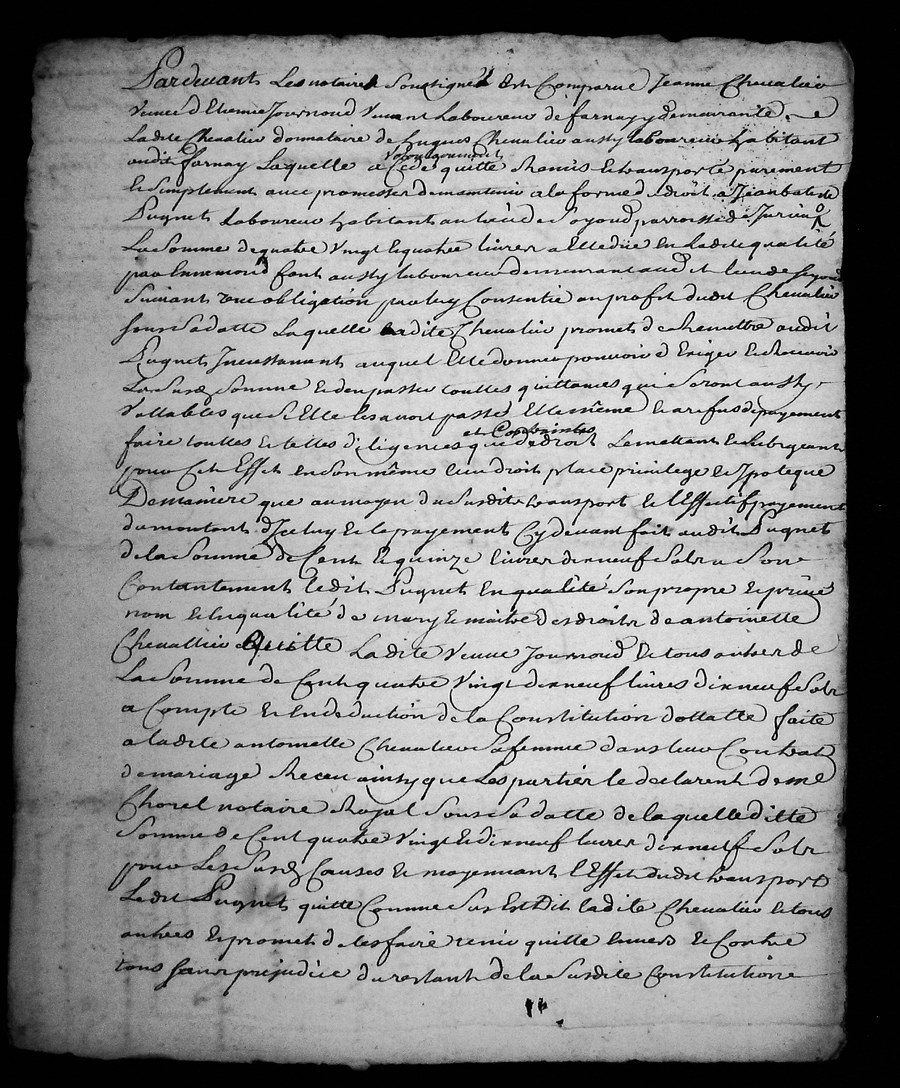 Pardevant Les notaires Soussignes Est Comparue Jeanne Chevalier
veuve d'Etienne Journoud vivant Laboureur de farnay y demeurante
Ladite Chevalier donnataire de hugues Chevalier aussy laboureur habitant
audit farnay Laquelle a volontairement Cedé quitte Remis et transporte purement
et simplement avec promesse de maintenir a la forme du droit a Jean batiste
Pugnet Laboureur habitant au lieu de parroisse de
La Somme de quatre vingt et quatre livres a Elle due en ladite qualité
par Ennemond font aussy laboureur demeurant audit lieu de
Suivant une obligation par luy Consentie au profit dudit Chevalier
sous Sa datte Laquelle ladite Chevalier promet de Remettre audit
Pugnet Incessament auquel Elle donne pouvoir d'Exiger et Recevoir
La Susd Somme et d'en passer touttes quittances qui Seront aussy
vallables que Si Elle les avoit passé Elle même et a refus de payement
faire touttes et telles diligences et Contraintes que de droit Le mettant et Subrogeant
pour Cet Effet en Son même lieu droit place privilege et Ipoteque
De maniere que au moyen du Susdit transport et l'Effectif payement
du montant d'Iceluy et le payement Cy devant fait audit Pugnet
de la Somme de Cent et quinze livres dix neuf Sols a Son
Contantement ledit Pugnet En qualité Son propre et privé
nom et En qualité de mary et maitre des droits de antoinette
Chevallier Quitte La dite veuve Journoud et tous autres de
La Somme de Cent quatre vingt dix neuf livres dix neuf Sols
a Compte et En deduction de la Constitution dottalle faite
a ladite antoinette Chevalier Sa femme dans leur Contrat
de mariage Receu ainsy que Les parties le declarent de me
Chorel notaire Royal Sous Sa datte de laquelle ditte
Somme de Cent quatre vingt et dix neuf livres dix neuf Sols
pour Les Susd Causes et moyennant l'Effet dudit transport
Ledit Pugnet quitte Comme Sus Est Dit ladite Chevalier et tous
autres et promet de les faire tenir quitte Envers et Contre
tous Sans prejudice du restant de la Susdite Constitution